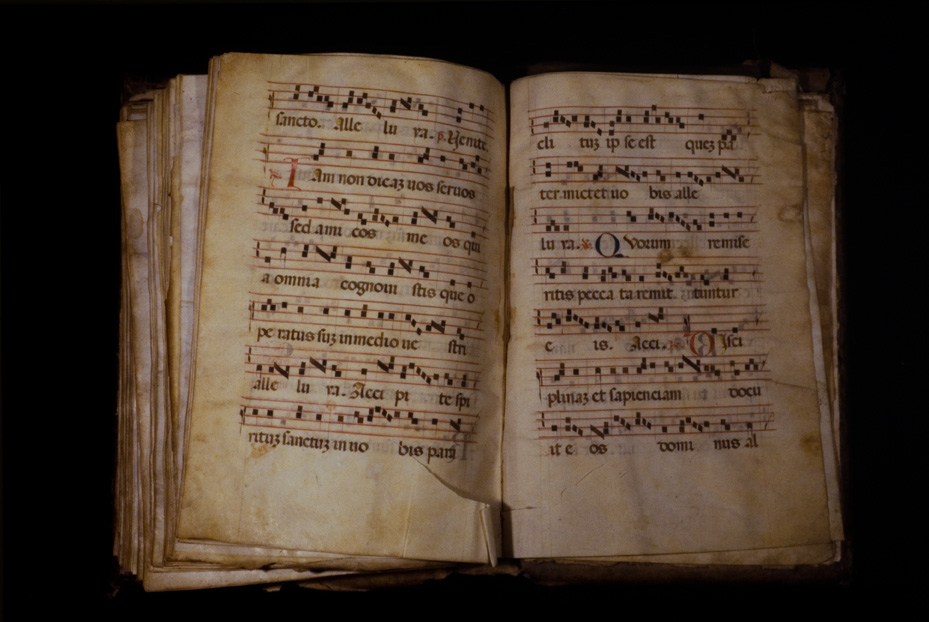 sancto. Alle lu ya. Venite.
Iam non dicaʒ uos seruos
sed ami cos me os qui
a omnia cognoui stis que o
pe ratus suʒ in medio ue stri
alle lu ya. Acci pi te spi
rituʒ sanctuʒ in uo bis para
cli tuʒ ip se est queʒ pa
ter mictet uo bis alle
lu ya. Quorum remise
ritis pecca ta remit tuntur
e is. Acci. Disci
plinaʒ et sapienciam docu
it e os domi nus al